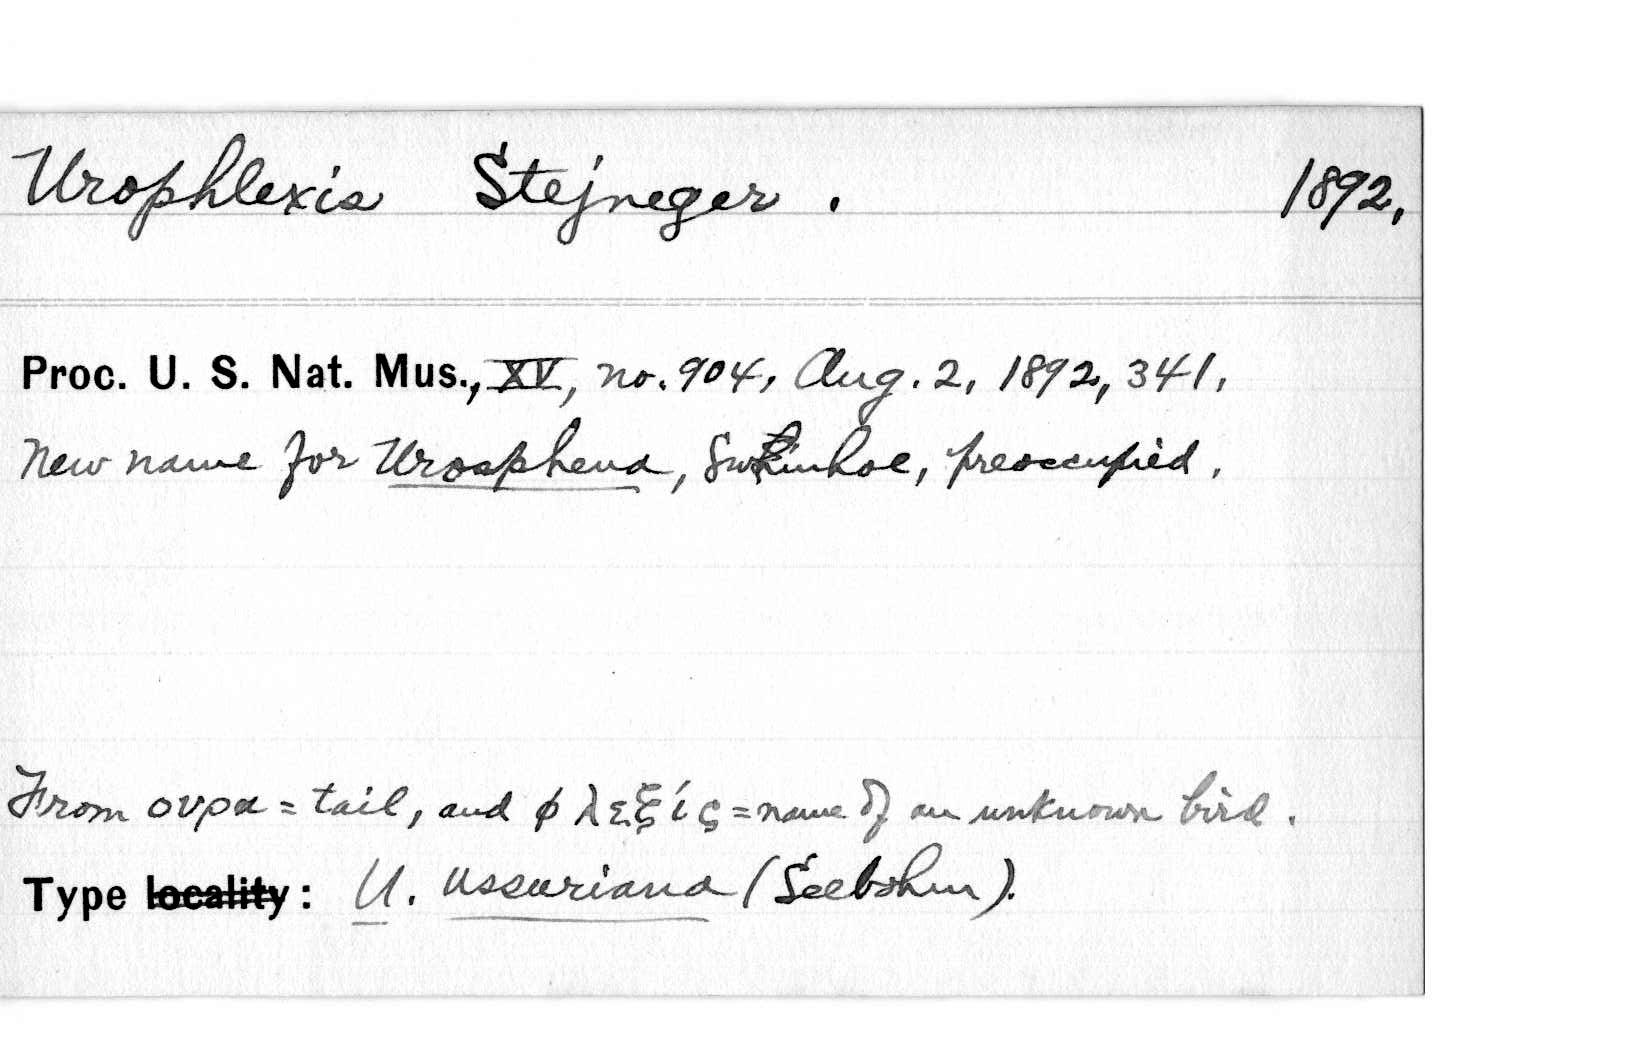 Urophlexis Stejneger. 1892,
Proc. U. S. Nat. Mus., XV, no. 904, Aug. 2, 1892, 341,
New name for Urosphena, Swinhoe, preoccupied.
From ουρα = tail, and φλεξίς = name of an unknown bird.
Type locality: U. ussuriana (Seebohm).